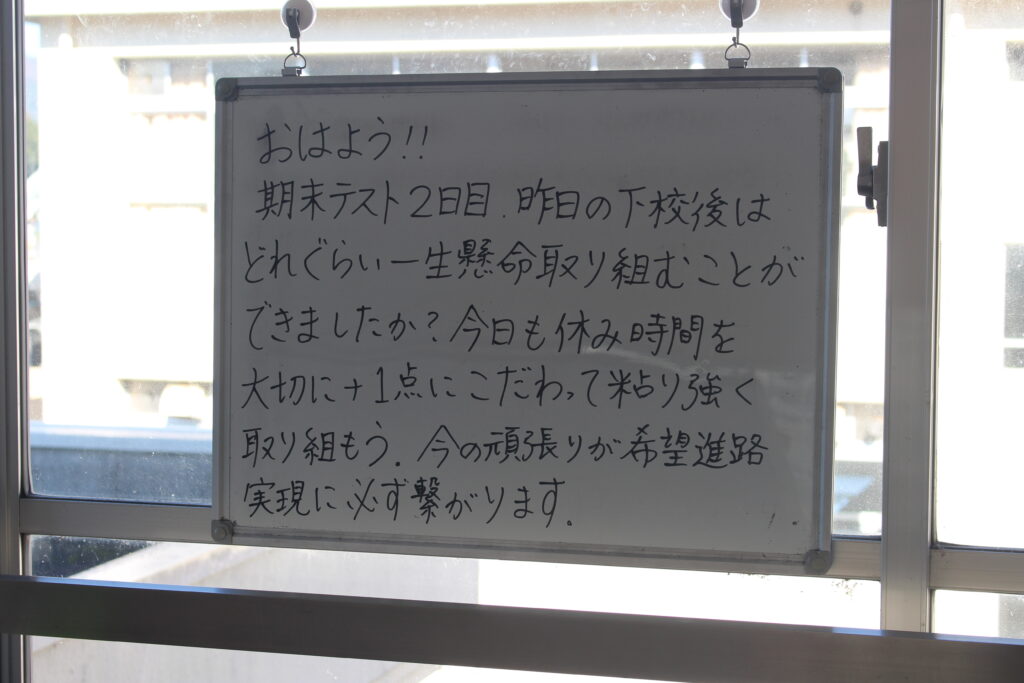 おはよう!!
期末テスト2日目.昨日の下校後は
どれぐらい一生懸命取り組むことが
できましたか?今日も休み時間を
大切に+1点にこだわって粘り強く
取り組もう.今の頑張りが希望進路
実現に必ず繋がります.